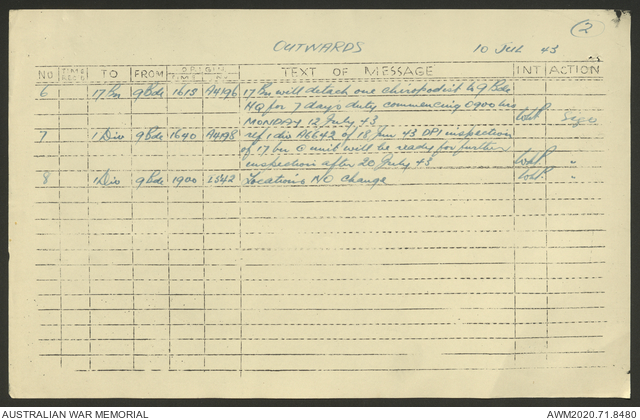 2
OUTWARDS 10 JUL 43
NO TIME RECD TO FROM ORIGIN TIME NO TEXT OF MESSAGE INT ACTION
6 17 Bn 9 Bde 1615 A4196 17 Bn will detach one chiropodist to 9 Bde
HQ for 7 days duty commencing 0900 hrs
MONDAY 12 July 43 Sigs
7 1 Div 9 Bde 1640 A4198 ref 1 div A6642 of 18 Jun 43 DPI inspection
of 17 bn C unit will be ready for further
inspection after 20 July 43 "
8 1 Div 9 Bde 1900 L542 Locations NO change "
AUSTRALIAN WAR MEMORIAL AWM2020.71.8480